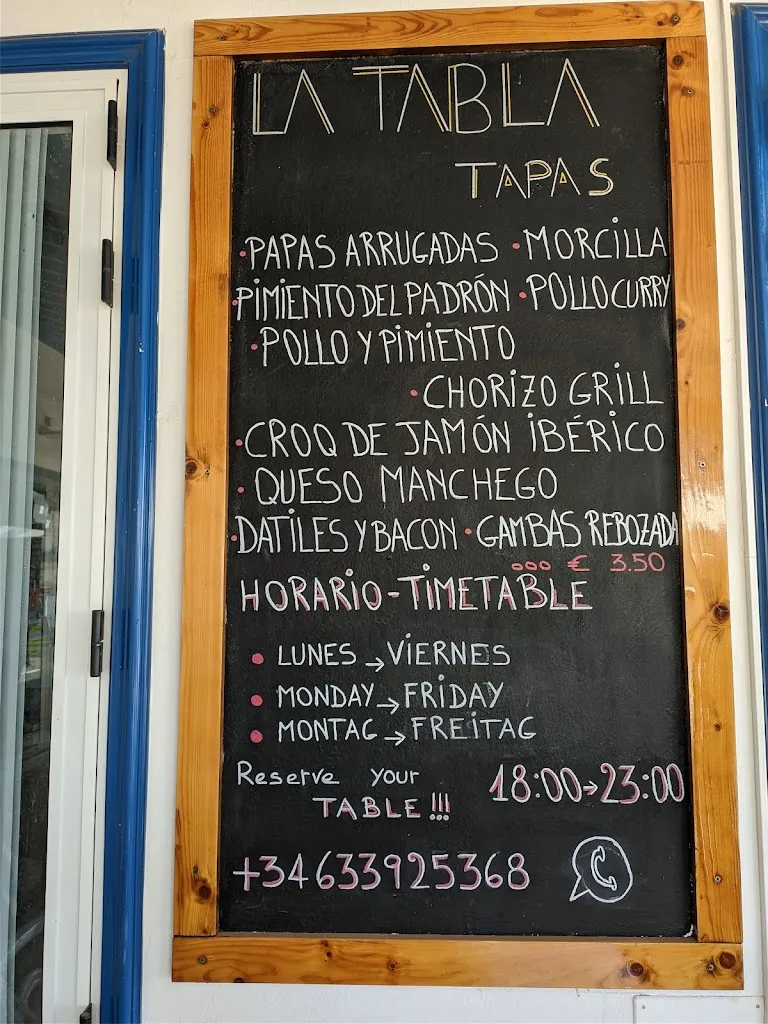 LA TABLA
TAPAS
• PAPAS ARRUGADAS • MORCILLA
• PIMIENTO DEL PADRÓN • POLLO CURRY
• POLLO Y PIMIENTO
• CHORIZO GRILL
• CROQ DE JAMÓN IBÉRICO
• QUESO MANCHEGO
• DATILES Y BACON • GAMBAS REBOZADA
ooo € 3.50
HORARIO - TIMETABLE
• LUNES → VIERNES
• MONDAY → FRIDAY
• MONTAG → FREITAG
Reserve your
TABLE !!!
18:00 → 23:00
+34 633925368